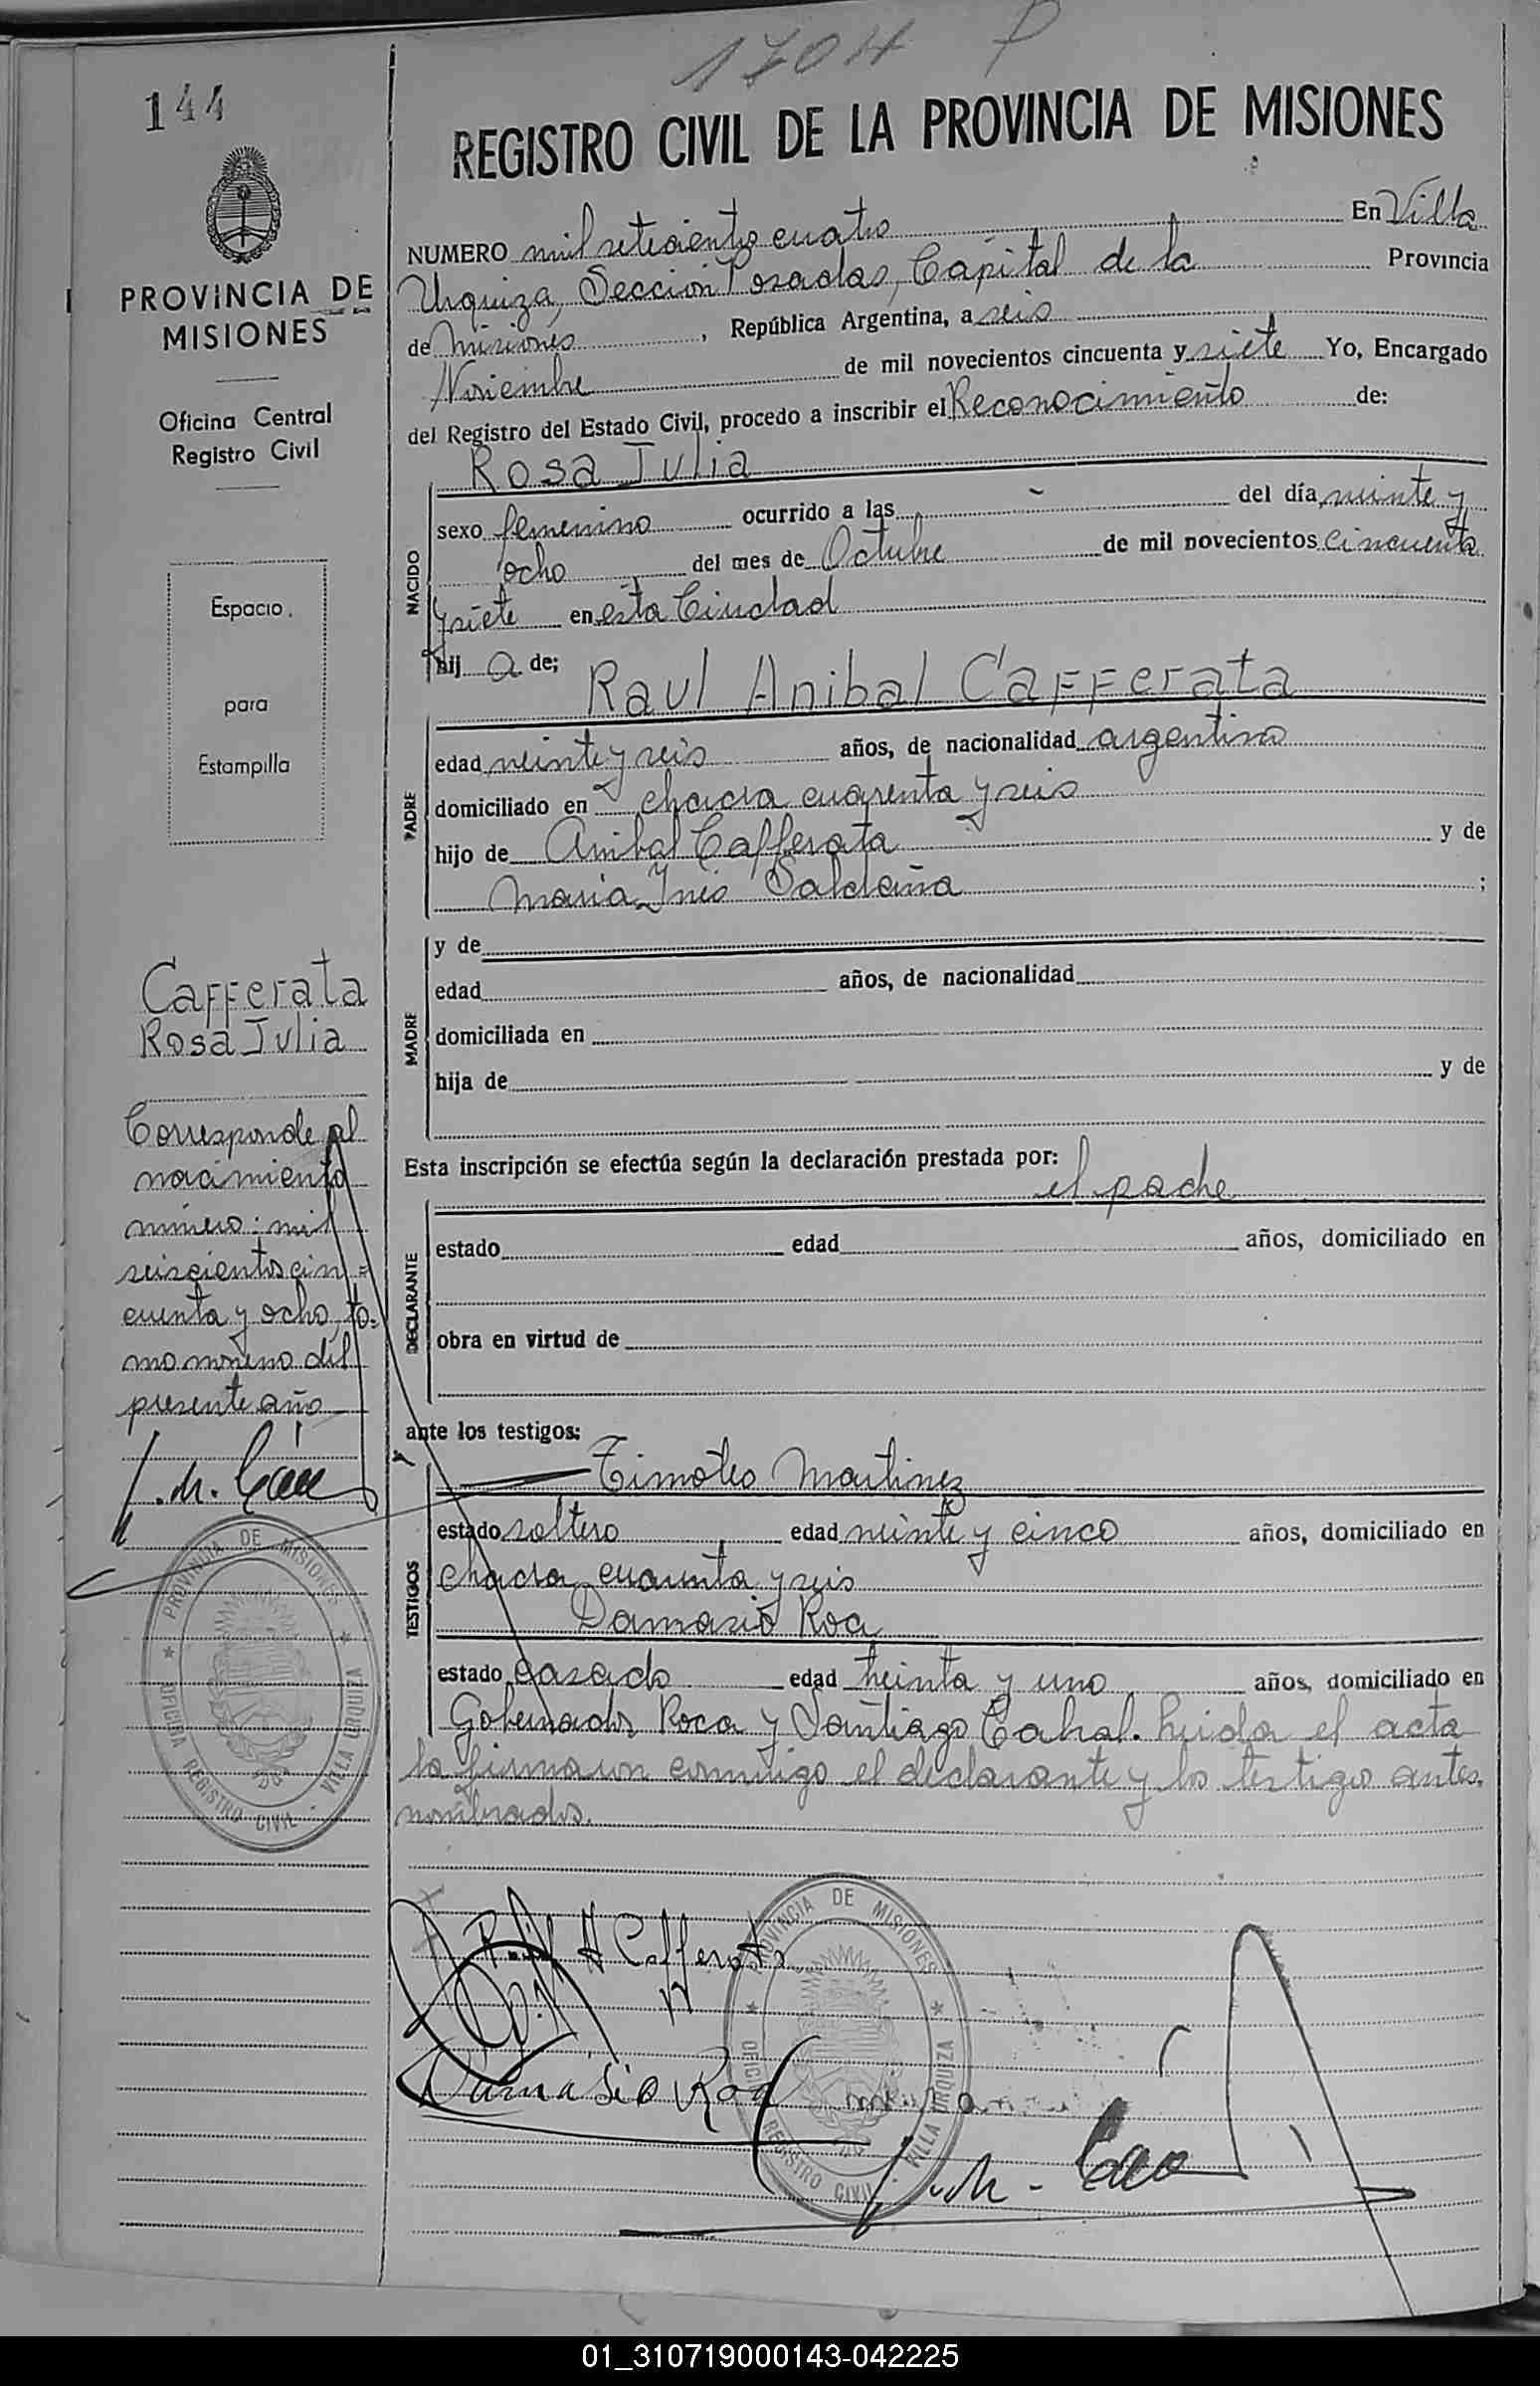 1704 P
144
REGISTRO CIVIL DE LA PROVINCIA DE MISIONES
PROVINCIA DE
MISIONES
Oficina Central
Registro Civil
Espacio
para
Estampilla
NUMERO mil setecientos cuatro En Villa
Urquiza, Sección Posadas, Capital de la Provincia
de Misiones, República Argentina, a seis
Noviembre de mil novecientos cincuenta y siete Yo, Encargado
del Registro del Estado Civil, procedo a inscribir el Reconocimiento de:
Rosa Julia
NACIDO
sexo femenino ocurrido a las - del día veinte y
ocho del mes de Octubre de mil novecientos cincuenta
y siete en esta Ciudad
hij a de;
Raul Anibal Cafferata
PADRE
edad veinte y seis años, de nacionalidad argentino
domiciliado en chacra cuarenta y seis
hijo de Anibal Cafferata y de
Maria Ines Saldaña ;
MADRE
y de
edad años, de nacionalidad
domiciliada en
hija de y de
Cafferata
Rosa Julia
Corresponde al
nacimiento
número: mil
seiscientos cin=
cuenta y ocho, to-
mo noveno del
presente año
Esta inscripción se efectúa según la declaración prestada por:
el padre
DECLARANTE
estado edad años, domiciliado en
obra en virtud de
ante los testigos:
Timoteo Martinez
TESTIGOS
estado soltero edad veinte y cinco años, domiciliado en
chacra cuarenta y seis
Damasio Roa
estado casado edad treinta y uno años, domiciliado en
Gobernador Roca y Santiago Cabral. Leida el acta
la firmaron conmigo el declarante y los testigos antes
nombrados.
PROVINCIA DE MISIONES
OFICINA REGISTRO CIVIL - VILLA URQUIZA
R. A Cafferata
Damasio Roa
PROVINCIA DE MISIONES
OFICINA REGISTRO CIVIL - VILLA URQUIZA
01_310719000143-042225